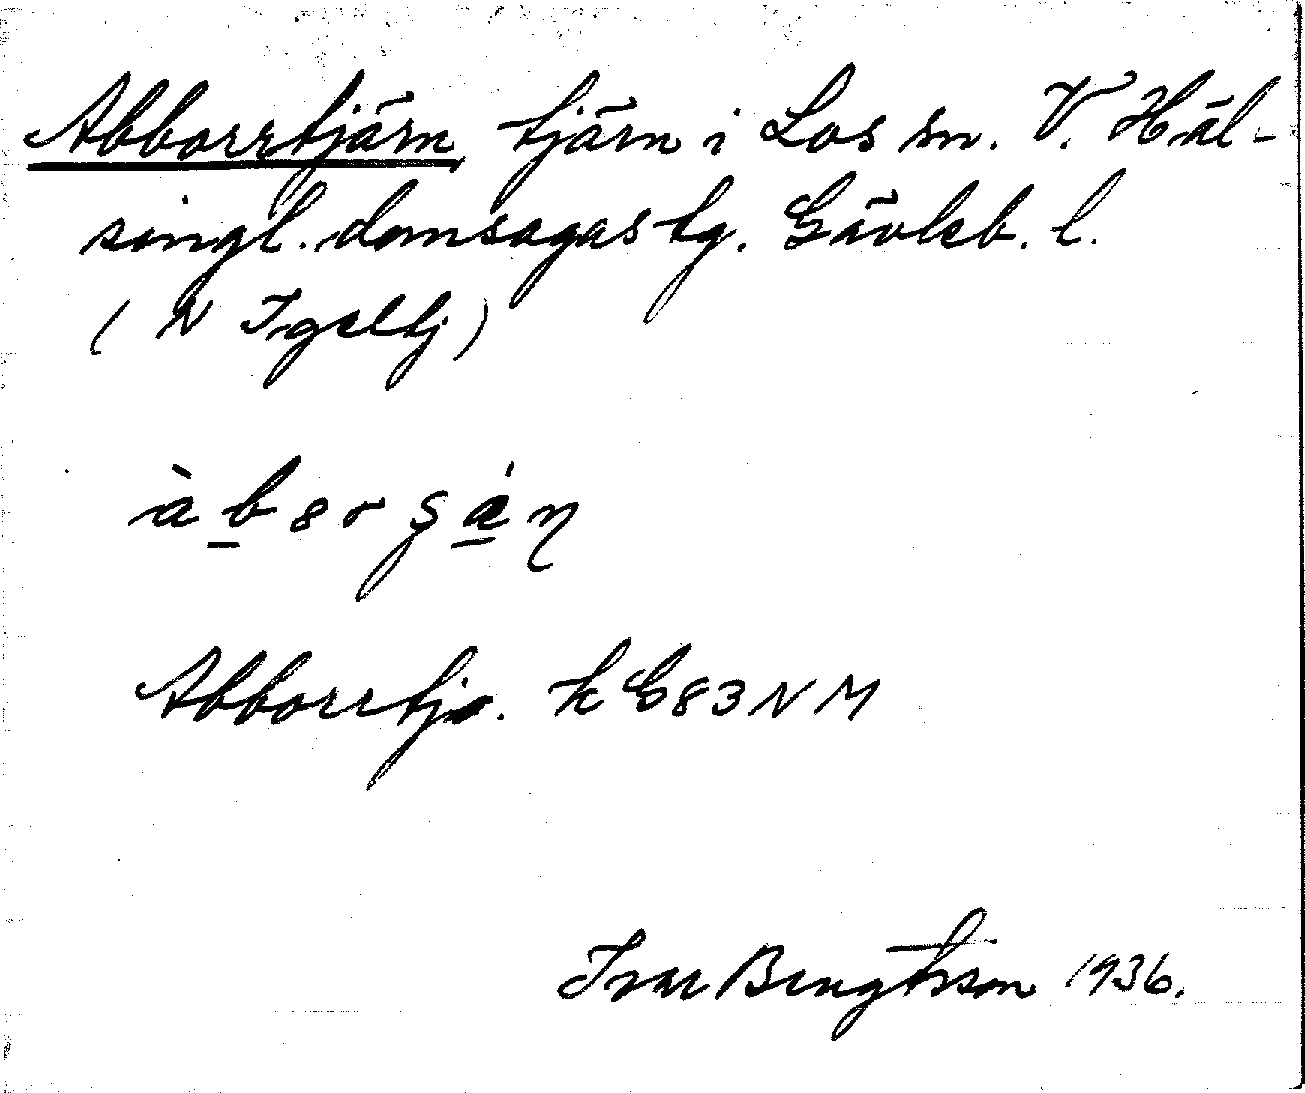 Abborrtjärn, tjärn i Los sn. V. Häl-
singl. domsagas tg. Gävleb. l.
(N Igeltj)
àb8rʂán
Abborrtj. k G83NM
Ivar Bengtsson 1936.